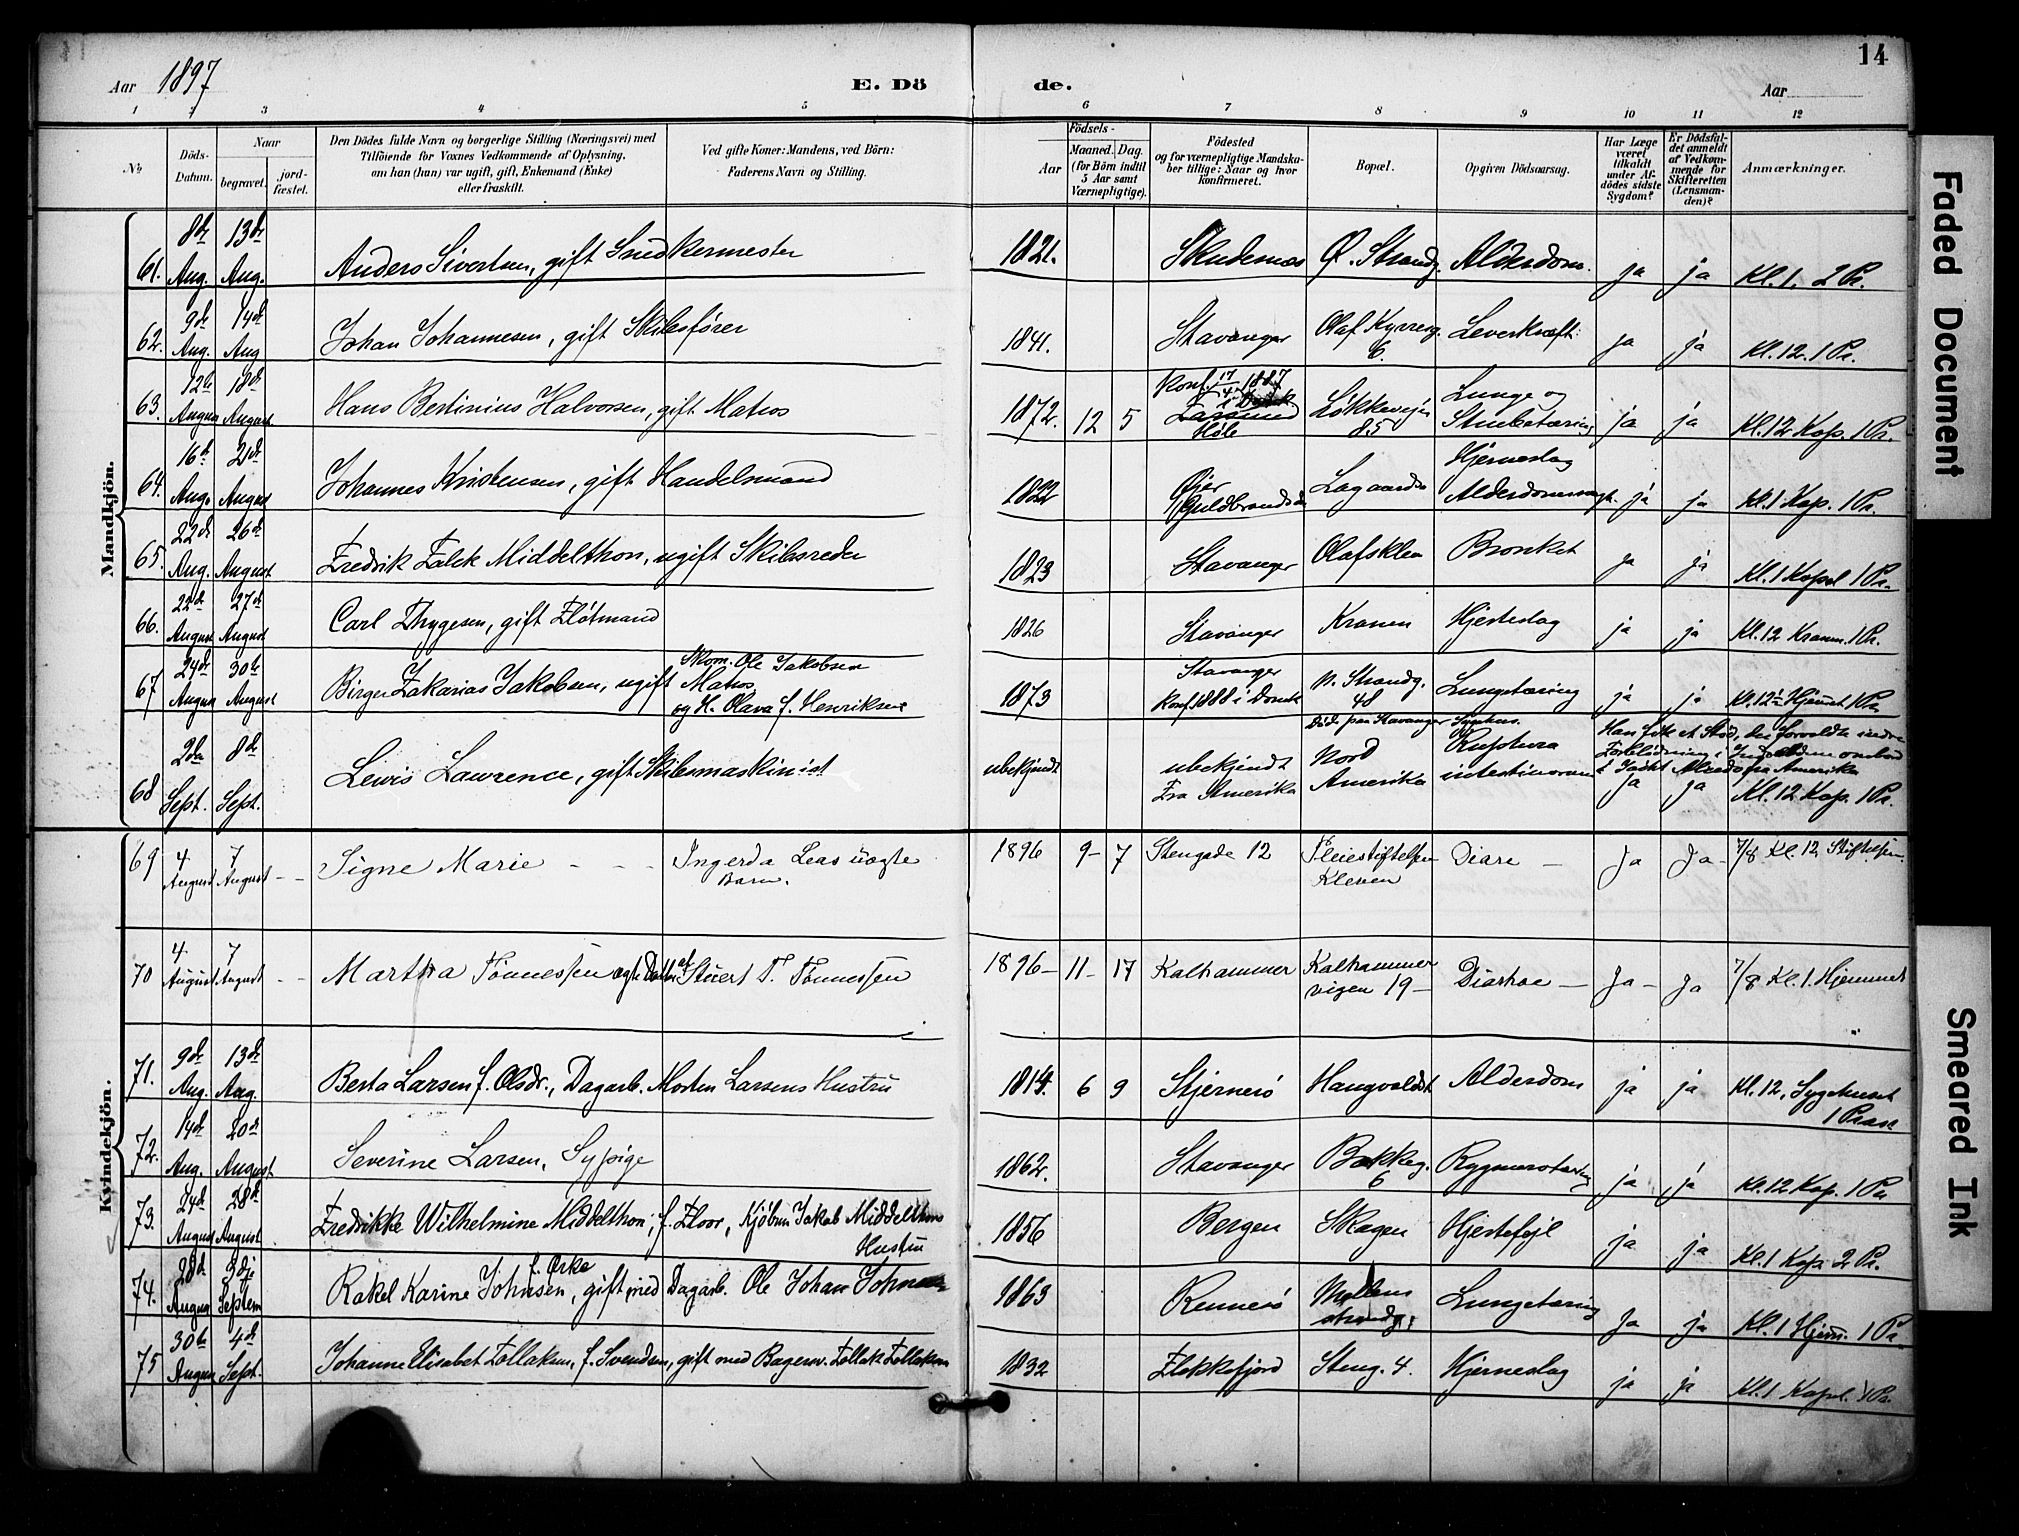 14
Aar 1897 E. Dö de. Aar
1 2 3 4 5 6 7 8 9 10 11 12
No Döds-Datum. Naar begravet. jord-fæstet. Den Dödes fulde Navn og borgerlige Stilling (Næringsvei) med Tilföiende for Voxnes Vedkommende af Oplysning, om han (hun) var ugift, gift, Enkemand (Enke) eller fraskilt. Ved gifte Koner: Mandens, ved Börn: Faderens Navn og Stilling. Födsels- Aar Maaned. Dag. (for Börn indtil 5 Aar samt Værnepligtige). Födested og for værnepligtige Mandskaber tillige: Naar og hvor konfirmeret. Bopæl. Opgiven Dödsaarsag. Har Læge været tilkaldt under Afdödes sidste Sygdom? Er Dödsfaldet anmeldt af Vedkommende for Skifteretten (Lensmanden)? Anmærkninger.
Mandkjön.
61. 8de Aug. 13de Aug. Anders Sivertsen, gift Snedkermester 1821. Skudenæs Ø. Strandg. Alderdom. ja ja Kl. 1. 2 Pr.
62. 9de Aug. 14de Aug Johan Johannesen, gift Skibsfører 1841. Stavanger Olaf Kyrresg. 6. Leverkræft. ja ja Kl. 12. 1 Pr.
63. 12te August 18de August Hans Bertinius Halvorsen, gift Matros 1872. 12 5 Konf. 17/4 1887 i Domk Høle Løkkeveien 85 Lunge og Strubetæring ja ja Kl. 12 Kap. 1 Pr.
64. 16de Aug. 21de August Johannes Kristensen, gift Handelsmand 1822 Øier Guldbrandsd. Lagaardsv Hjerneslag Alderdomssvagh. ja ja Kl. 1 Kap. 1 Pr.
65. 22de Aug. 26de August Fredrik Falck Middelthon, ugift Skibsreder 1823 Stavanger Olafsklev Bronket ja ja Kl. 1 Kapel 1 Pr.
66. 22de August 27de August Carl Thygesen, gift Fløtmand 1826 Stavanger Kranen Hjerteslag ja ja Kl. 12 Kranen. 1 Pr.
67 24de August 30te August Birger Zakarias Jakobsen, ugift Matros Skom. Ole Jakobsen og H. Olava f. Henriksen 1873 Stavanger Konf 1888 i Domk N. Strandg. 48 Lungetæring ja ja Kl. 12 i Hjemmet 1 Pr.
68 2den Sept. 8de Sept. Lewis Lawrence, gift Skibsmaskinist ubekjendt ubekjendt Fra Amerika Død paa Stavanger Sygehus. Nord Amerika Ruptura intestinorum Han fik et Stød, der forvoldte indre Forblødning i Indvoldene ombord i Jacht fra Amerika Ja ja Kl. 12 Kap. 1 Pr.
Kvindekjön.
69 4 August 7 August - - Signe Marie - - - Ingerda Leas uægte Barn. 1896 9- 7 Stengade 12 Pleiestiftelsen Kleven Diare - Ja Ja- 7/8 Kl. 12 Stiftelsen
70 4 August 7 August - - Martha Tönnessen ægte Datter af Stuert T. Tönnessen 1896- 11- 17 Kalhammer Kalhammer vigen 19- Diarhoe - Ja- Ja 7/8 Kl. 1. Hjemmet
71. 9de Aug. 13de Aug. Berta Larsen f. Olsdr., Dagarb. Morten Larsens Hustru 1814. 6 9 Stjernerö Haugvaldst Alderdom ja ja Kl. 12, Sygehuset 1 Præst
72. 14de Aug. 20de August Severine Larsen, Sypige 1862. Stavanger Bakkeg. 6 Rygmarvstæring ja ja Kl. 12 Kap. 1 Pr
73. 24de August 28de August Fredrikke Wilhelmine Middelthon, f. Floor, Kjøbm Jakob Middelthons Hustru 1856 Bergen Skagen Hjertefejl ja ja Kl. 1 Kap 2 Pr.
74. 28de August 3dje Septem Rakel Karine Johnsen, f. Ørke gift med Dagarb. Ole Johan Johnsen 1863 Rennesö Møllens strandg. Lungetæring Ja ja Kl. 1 Hjem. 1 Pr.
75 30te August 4de Sept. Johanne Elisabet Tollaksen, f. Svendsen, gift med Bagersv. Tollak Tollaksen 1832 Flekkefjord Steng. 4. Hjerneslag ja ja Kl. 1 Kapel. 1 Pr.
Faded Document
Smeared Ink